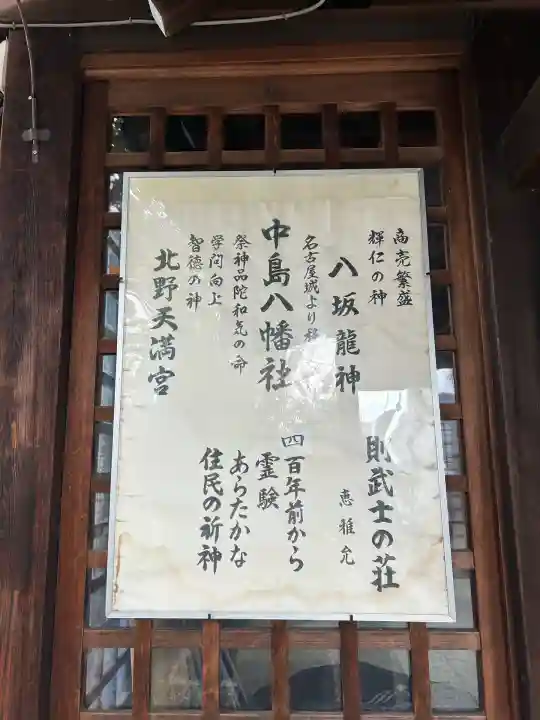 商売繁盛
輝仁の神
八坂龍神
名古屋城より
中島八幡社
祭神品陀和気の命
学問向上
智德の神
北野天満宮
則武士の荘
恵雅允
四百年前から
霊験
あらたかな
住民の祈神